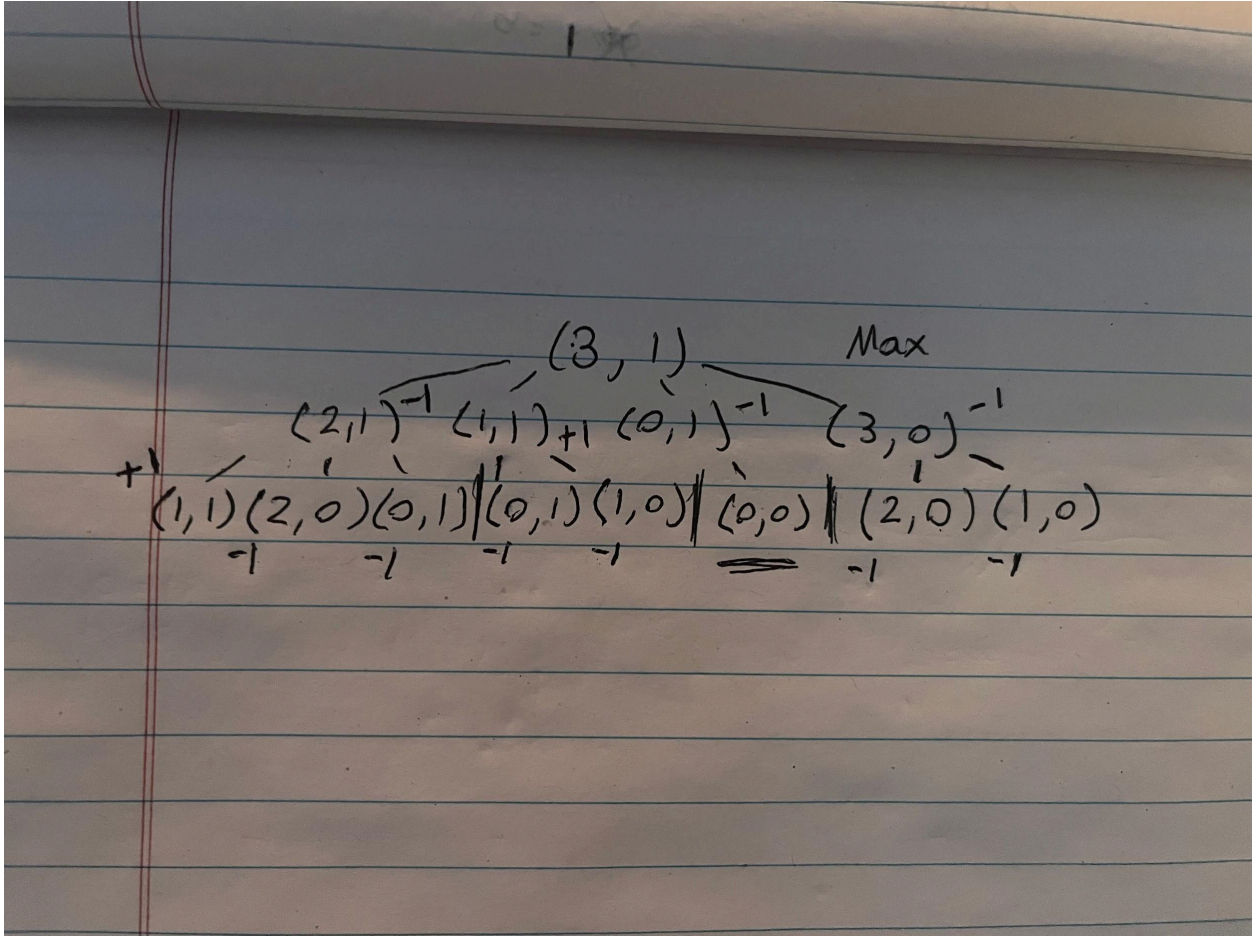 (3, 1) Max
(2,1) -1 (1,1) +1 (0,1) -1 (3,0) -1
+1 (1,1) (2,0) (0,1) | (0,1) (1,0) | (0,0) | (2,0) (1,0)
-1 -1 -1 -1 -1 -1